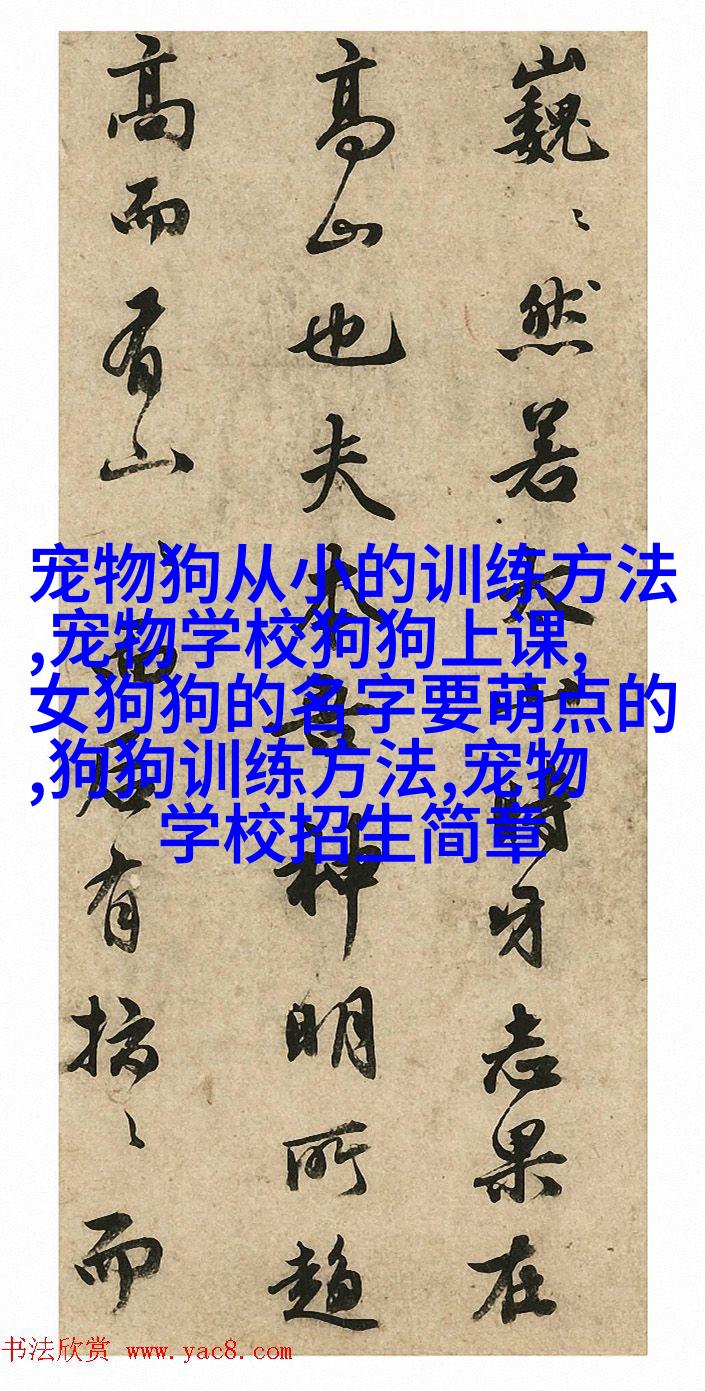 巍〻然若太時牙志果在
高山也夫本吾神明所趨
高而有山有而
宠物狗从小的训练方法
,宠物学校狗狗上课,
女狗狗的名字要萌点的
,狗狗训练方法,宠物
学校招生简章
书法欣赏 www.yac8.com